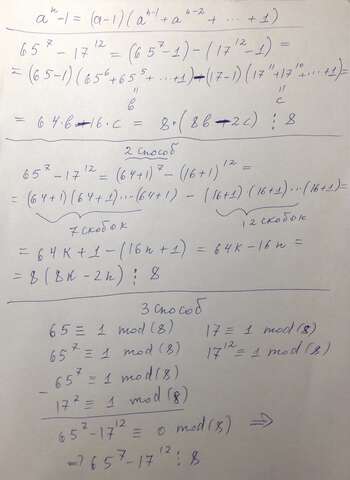 aⁿ-1 = (a-1)(aⁿ⁻¹+aⁿ⁻²+ ... +1)
65⁷-17¹² = (65⁷-1)-(17¹²-1)=
=(65-1)(65⁶+65⁵+...+1)-(17-1)(17¹¹+17¹⁰+...+1)=
" "
в c
= 64·в-16·c = 8·(8в-2c) ⋮ 8
2 способ
65⁷-17¹² = (64+1)⁷-(16+1)¹² =
=(64+1)(64+1)...(64+1) - (16+1)(16+1)...(16+1)=
7 скобок 12 скобок
= 64к+1-(16n+1) = 64к-16n =
= 8(8к-2n) ⋮ 8
3 способ
65 ≡ 1 mod(8) 17 ≡ 1 mod(8)
65⁷ ≡ 1 mod(8) 17¹² ≡ 1 mod(8)
- 65⁷ ≡ 1 mod(8)
17² ≡ 1 mod(8)
65⁷-17¹² ≡ 0 mod(8) ⇒
⇒ 65⁷-17¹² ⋮ 8